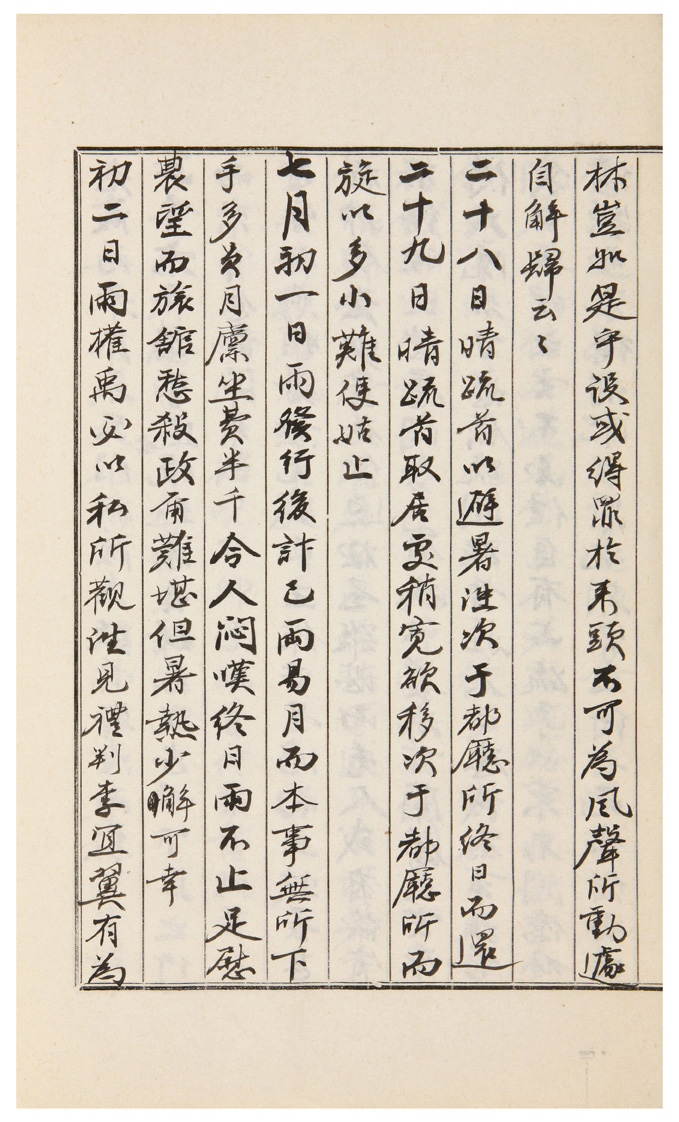 林豈如是乎設或得罪於來頭不可為風聲所動遽
自解歸云々
二十八日晴疏首以避暑進次于都廳所終日而還
二十九日晴疏首取居處稍寬欲移次于都廳所而
旋以多小難便姑止
七月初一日雨發行後計已兩易月而本事無所下
手多岁月廩坐費半千令人悶嘆終日雨不止足慰
農望而旅館愁殺政甭難堪但暑熱少解可幸
初二日雨權禹必以私所觀進見禮判李宜翼有為